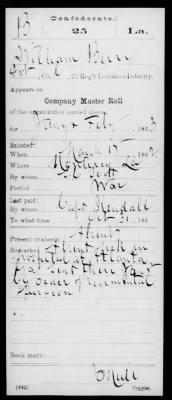 B
Confederate.
25
La.
William Berry
Pvt, Co. 25 Reg't Louisiana Infantry.
Appears on
Company Muster Roll
of the organization named above,
for Jany & Feby, 1863
Enlisted:
When March 15, 186
Where La
By whom Scott
Period War
Last paid:
By whom Capt
To what time Oct 31, 186
Present or absent Absent
Remarks: Absent sick in
Hospital at Atlanta
Ga. Sent there
by order of regimental
Surgeon
Book mark:
(642)
Copyist.